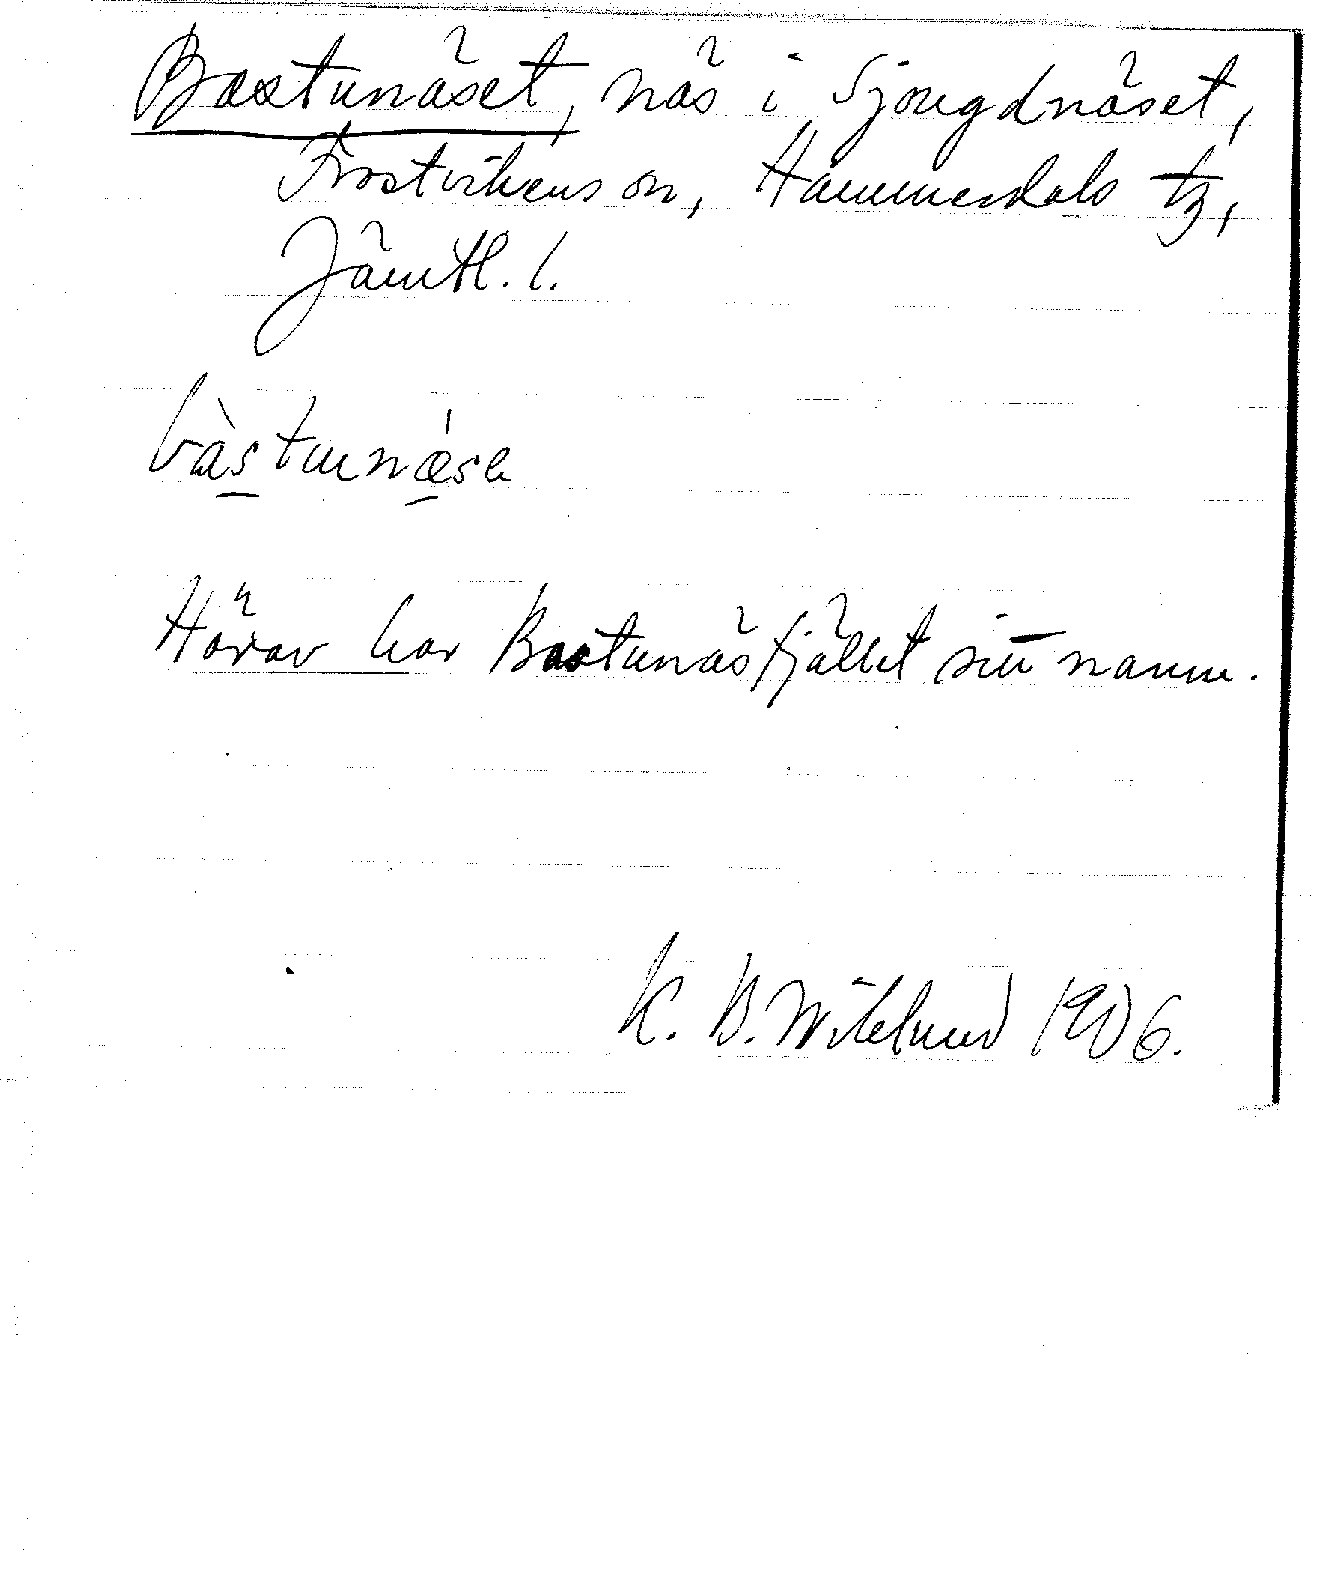 Bastunäset, näs i Sjougdnäset,
Frostvikens sn, Hammerdals tg,
Jämtl. l.
bàstunǽsə
Härav har Bastunäsfjället sitt namn.
K. B. Wiklund 1906.